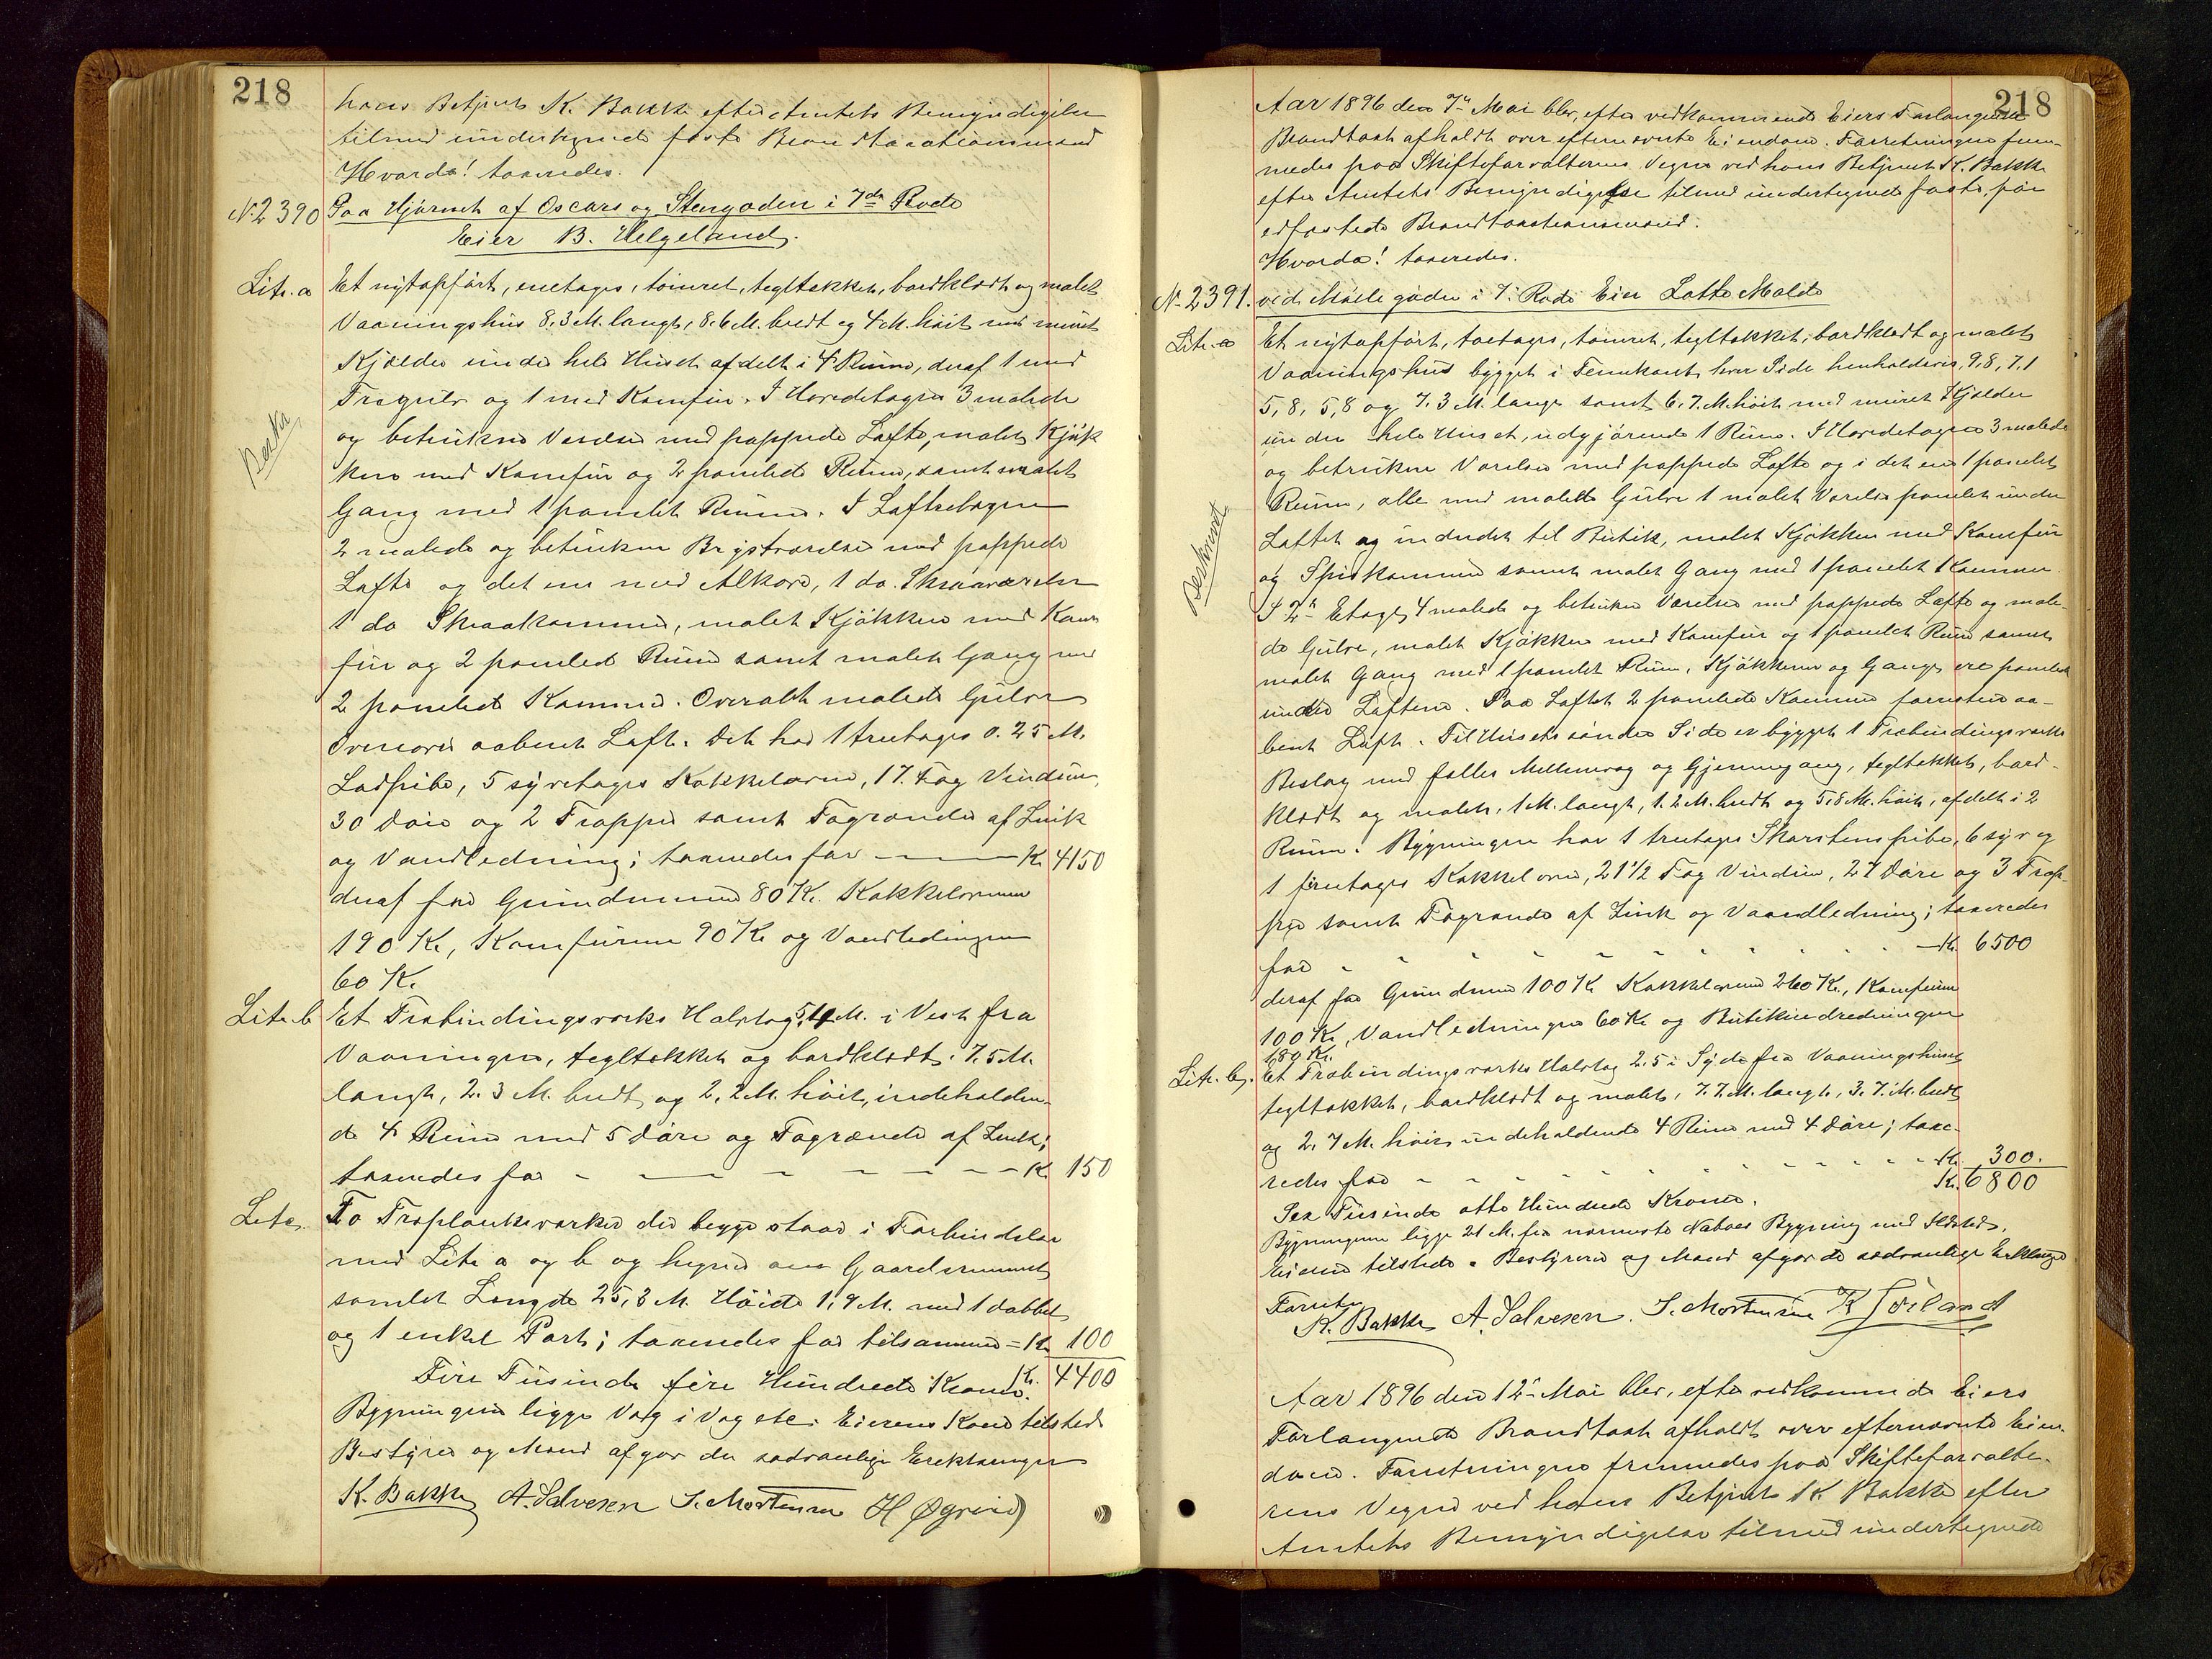 218
hans Betjent K. Bakke efter Amtets Bemyndigelse
tilmed undertegnede faste Brandtaxationsmænd
Hvorda! taxeredes.
N. 2390 Paa Hjørnet af Oscars og Stengaden i 7de Rode
Eier B. Helgeland.
Litr. a Et nytopført, enetages, tømret, tegltækket, bordklædt og malet
Vaaningshus 8,3 M. langt, 8.6 M. bredt og 4 M. høit med muret
Kjælder under hele Huset afdelt i 4 Rum, deraf 1 med
og 1 med Komfur. I Hovedetagen 3 malede
Beskr.
og betrukne Værelser med pappede Lofte, malet Kjøk
ken med Komfur og 2 panelede Rum, samt malet
Gang med 1 panelet Rum. I Loftsetagen
2 malede og betrukne Brystværelser med pappede
Lofte og det ene med Alkove, 1 do. Skraaværelse
1 do Skraakammer, malet Kjøkken med Kom
fur og 2 panelede Rum samt malet Gang med
2 panelede Kammer. Overalt malede Gulve
Ovenover aabent Loft. Det har 1 treetages 0.25 M.
5 syvetages Kakkelovne, 17. Fag Vinduer,
30 Døre og 2 Trapper samt Tagrender af Zink
og Vandledning; taxeredes for — Kr 4150
deraf for Grundmuren 80 Kr. Kakkelovnene
190 Kr, Komfurene 90 Kr og Vandledningen
60 Kr.
Litr. b Et Træbindingsværks Halvtag 5,4 M. i Vest fra
Vaaningen, tegltækket og bordklædt. 7.5 M.
langt, 2.3 M. bredt og 2.2 M. høit, indeholden-
de 4 Rum med 5 Døre og Tagrende af Zink;
taxeredes for — Kr 150
Litr c. To Træplankeværker der begge staar i Forbindelse
med Litr a og b og hegner om Gaardsrummet,
samlet Længde 25,3 M. Høide 1,9 M. med 1 dobbel
og 1 enkel Port; taxeredes for tilsammen = Kr 100
Fire Tusinde fire Hundrede Kroner. Kr. 4400
Bygningerne ligge Væg i Væg etc. Eierens Kone tilstede
Bestyrer og Mænd afgav de sædvanlige Erklæringer
K. Bakke A. Salvesen S. Mortensen H Øgreid
218
Aar 1896 den 7de Mai blev, efter vedkommende Eiers Forlangende
Brandtaxt afholdt over efternævnte Eiendom. Forretningen frem-
medes paa Skifteforvalterens Vegne ved hans Betjent K. Bakke
efter Amtets Bemyndigelse tilmed undertegnede faste, paa
edfæstede Brandtaxtionsmænd.
Hvorda! taxeredes.
N. 2391. ved Møllegaden i 7. Rode Eier Lotte Malde
Litr. a Et nytopført, toetages, tømret, tegltækket, bordklædt og malet
Vaaningshus bygget i Femkant hver Side henholdsvis, 9,8, 7,1
5,8, 5,8 og 7.3 M. lange samt 6.7. M. høit med muret Kjælder
under hele Huset, udgjørende 1 Rum. I Hovedetagen 3 malede
og betrukne Værelser med pappede Lofte og i det ene 1 panelet
Rum, alle med malede Gulve 1 malet Værelse panelet under
Besknevet
Loftet og indredet til Butik, malet Kjøkken med Komfur
og Spiskammer samt malet Gang med 1 panelet Kammer.
I 2den Etage 4 malede og betrukne Værelser med pappede Lofte og male-
de Gulve, malet Kjøkken med Komfur og 1 panelet Rum samt
malet Gang med 1 panelet Rum. Kjøkkener og Gange ere panelede
under Loftene. Paa Loftet 2 panelede Kammer forresten aa-
bent Loft. Til Husets søndre Side er bygget 1 Træbindingsværks
Beslag med fælles Mellemvæg og Gjennemgang, tegltækket, bord-
klædt og malet. 1 M. langt, 1.2 M. bredt og 5,8 M. høit, afdelt i 2
Rum. Bygningen har 1 treetages Skorstenspibe, 6 syv og
1 firetages Kakkelovne, 21 1/2 Fag Vinduer, 27 Døre og 3 Trap-
per samt Tagrende af Zink og Vandledning; taxeredes
for — Kr. 6500
deraf for Grundmur 100 Kr Kakkelovnene 260 Kr., Komfurene
100 Kr, Vandledningen 60 Kr og Butikindredningen
180 Kr.
Litr. b. Et Træbindingsværks Halvtag 2.5 i Syd fra Vaaningshuset
tegltækket, bordklædt og malet, 7.7. M. langt, 3.7. M. bredt
og 2.7 M. høit indeholdende 4 Rum med 4 Døre; taxe-
redes for — Kr. 300.
Kr. 6800
Sex Tusinde otte Hundrede Kroner.
Bygningerne ligge 21 M. fra nærmeste Naboes Bygning med Ildsted.
Eieren tilstede. Bestyreren og Mænd afgav de sædvanlige Erklæringer
Forretn
K. Bakke A. Salvesen. S. Mortensen K Joiland
Aar 1896 den 12te Mai blev, efter vedkommende Eiers
Forlangende Brandtaxt afholdt over efternævnte Eien-
dom. Forretningen fremmedes paa Skifteforvalte-
rens Vegne ved hans Betjent K. Bakke efter
Amtets Bemyndigelse tilmed undertegnede